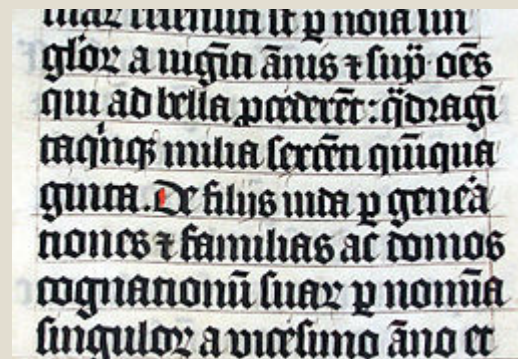 suar recensiti st p noīa sin
gloꝝ a uigīti ānis ⁊ sup̄ oēs
qui ad bella pcederēt: q̄dragī
taqnqꝫ milia sexcēti quīqua
ginta. De filijs iuda p genea
tiones ⁊ familias ac domos
cognationū suaꝝ p nomīa
singuloꝝ a vicesimo āno et